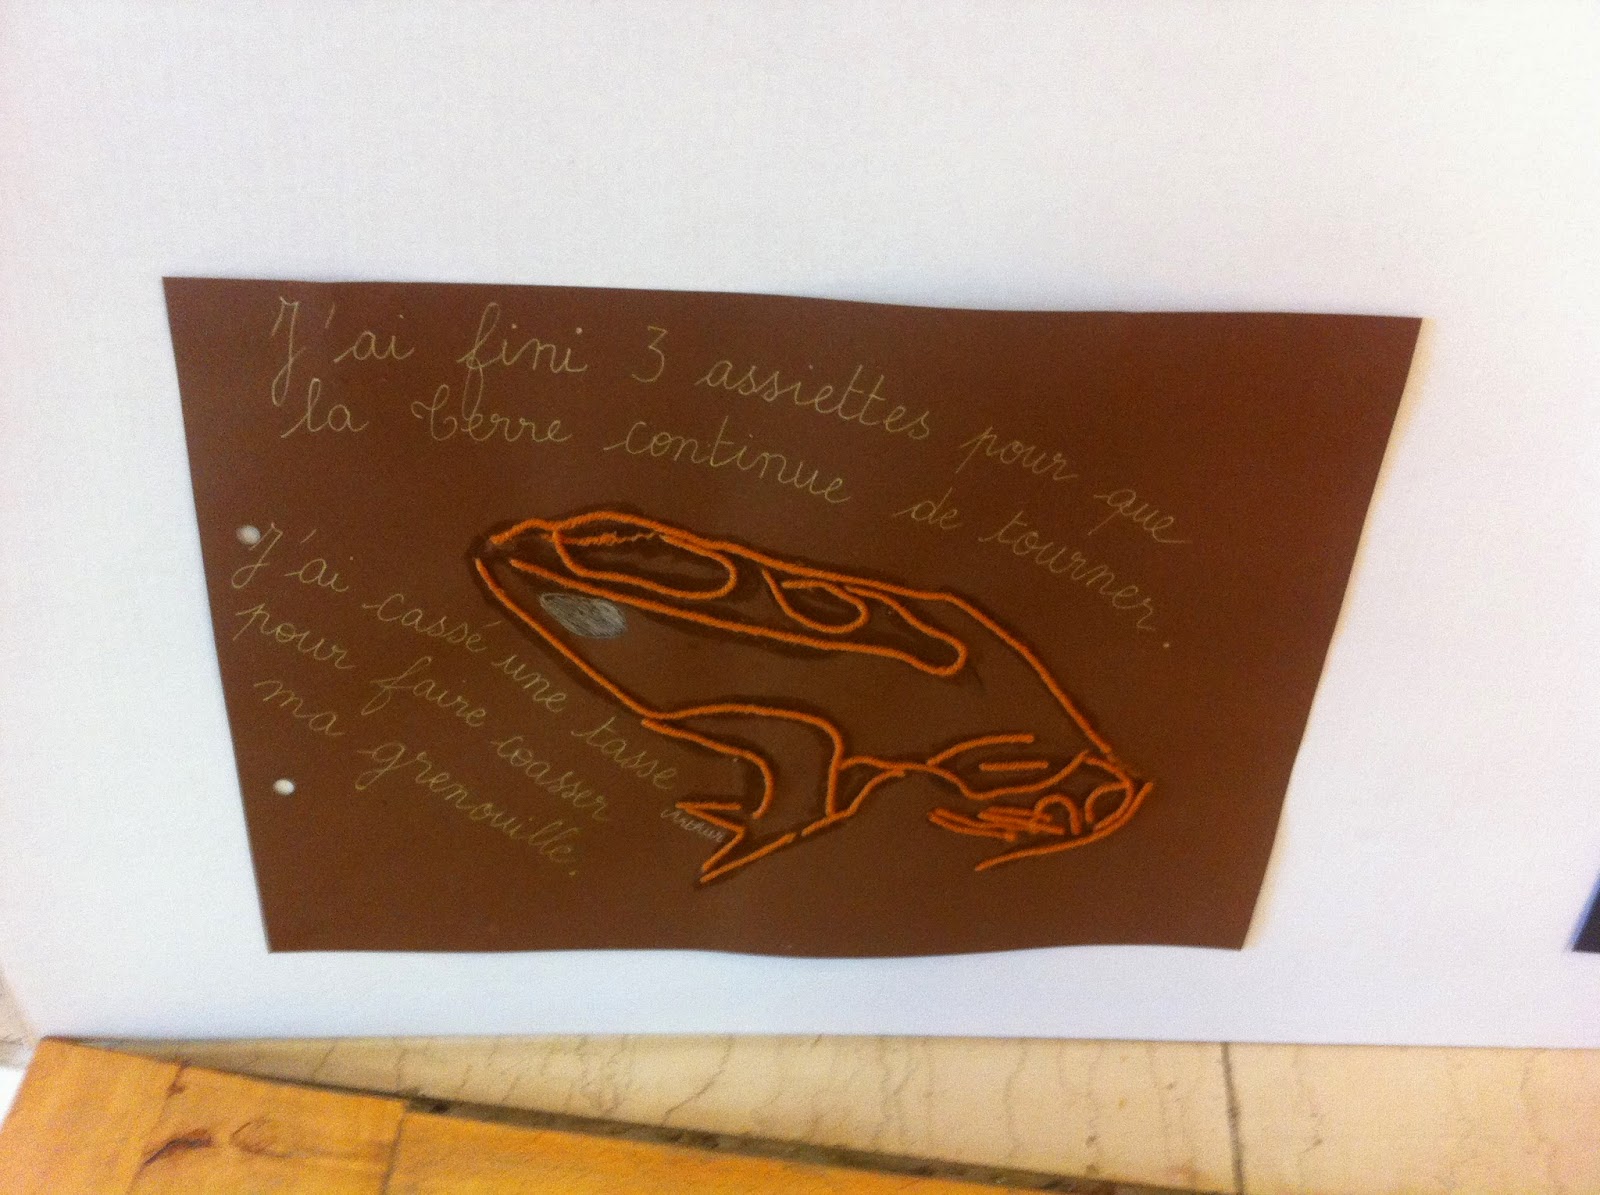 J'ai fini 3 assiettes pour que
la Terre continue de tourner.
J'ai cassé une tasse
pour faire coasser
ma grenouille.
Arthur